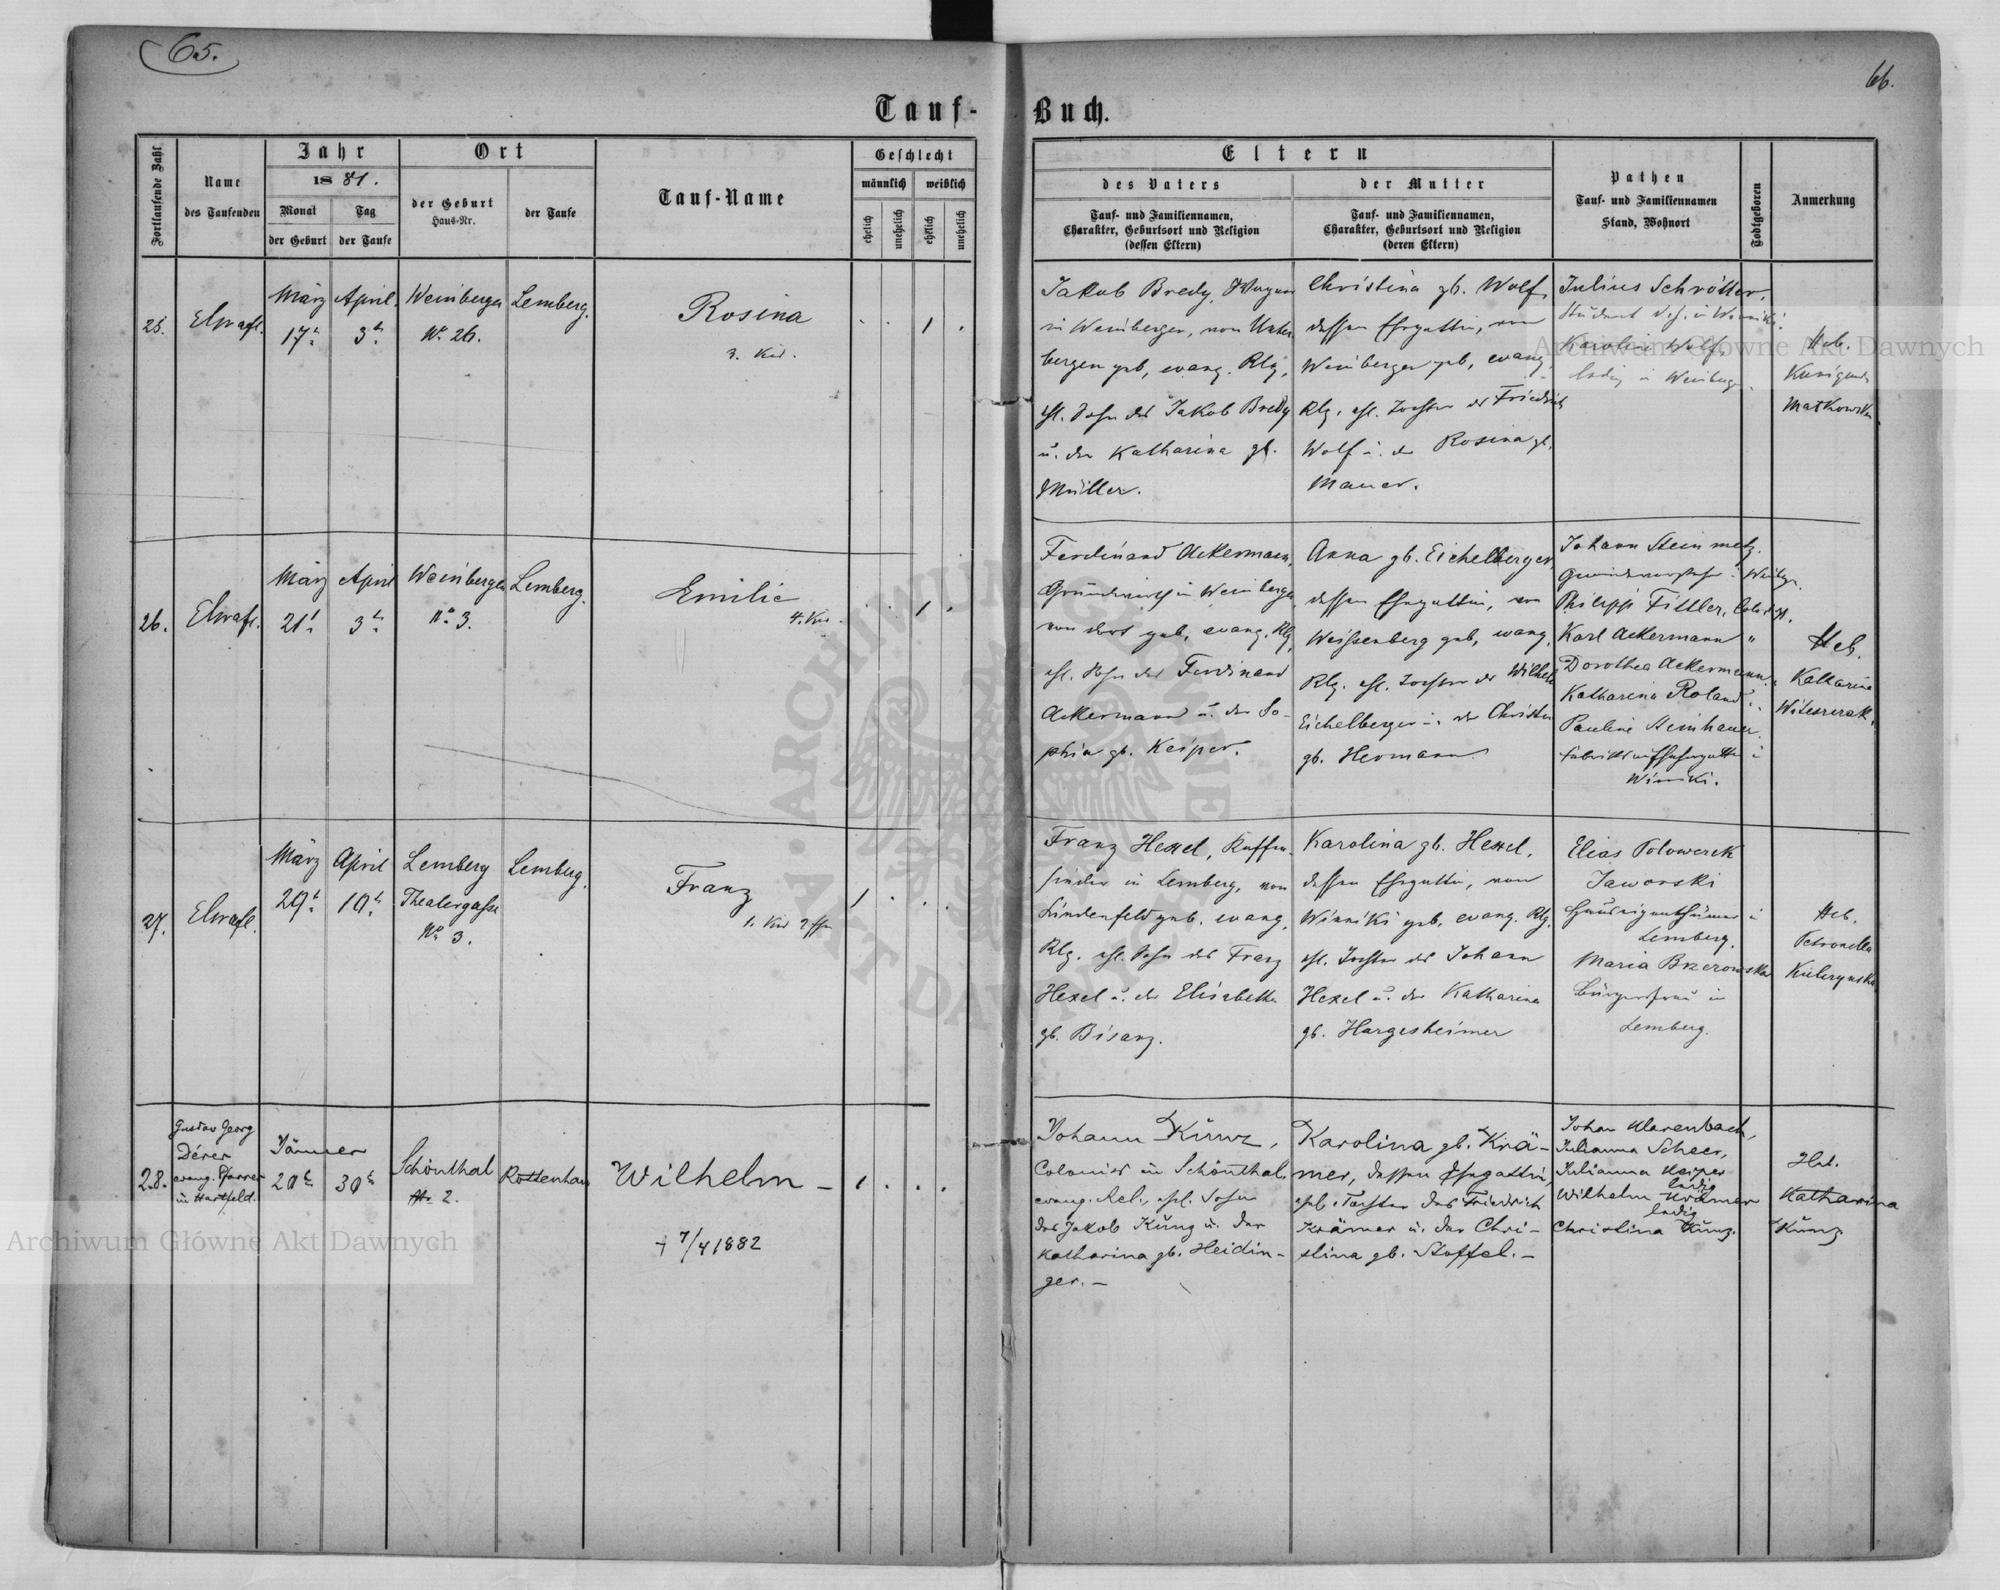 65.
66.
Tauf-Buch.
Fortlaufende Zahl
Name
des Taufenden
Jahr
1881.
Monat
Tag
der Geburt
der Taufe
Ort
der Geburt
Haus-Nr.
der Taufe
Tauf-Name
Geschlecht
männlich
weiblich
ehelich
unehelich
ehelich
unehelich
Eltern
des Vaters
Tauf- und Familiennamen,
Charakter, Geburtsort und Religion
(dessen Eltern)
der Mutter
Tauf- und Familiennamen,
Charakter, Geburtsort und Religion
(deren Eltern)
Pathen
Tauf- und Familiennamen
Stand, Wohnort
Todtgeboren
Anmerkung
25.
März
17t.
April
3t.
Weinbergen
No. 26.
Lemberg.
Rosina
3. Kind.
1
Jakob Bredy,
in Weinbergen, von Unter-
bergen geb, evang. Rlg,
ehl. Sohn des Jakob Bredy
u. der Katharina gb.
Müller.
Christina gb. Wolf,
dessen Ehegattin, von
Weinbergen geb, evang.
Rlg, ehl. Tochter des Friedrich
Wolf u. der Rosina gb.
Mauer.
Julius Schrötter,
Student
Karolina Wolf,
ledig in Weinbergen.
Heb.
Kunigunda
Matkowska
26.
März
21t.
April
3t.
Weinbergen
No. 3.
Lemberg.
Emilie
4. Kind.
1
Ferdinand Ackermann,
Grundwirth in Weinbergen,
von dort geb, evang. Rlg,
ehl. Sohn des Ferdinand
Ackermann u. der So-
phia gb. Kesper.
Anna gb. Eichelberger,
dessen Ehegattin, von
Weissenberg geb, evang.
Rlg. ehl. Tochter des Wilhelm
Eichelberger u. der Christina
gb. Hermann.
Johann Steinmetz.
Philipp Fittler,
Karl Ackermann "
Dorothea Ackermann
Katharina Roland
Pauline Steinhauer
Winniki.
Heb.
Katharina
27.
März
29t.
April
10t.
Lemberg
Theatergasse
No. 3.
Lemberg.
Franz
1. Kind 2 Ehe
1
Franz Hexel, Kaffee-
sieder in Lemberg, von
Lindenfeld geb. evang.
Rlg. ehl. Sohn des Franz
Hexel u. der Elisabetha
gb. Bisanz.
Karolina gb. Hexel,
dessen Ehegattin, von
Winniki geb, evang. Rlg,
ehl. Tochter des Johann
Hexel u. der Katharina
gb. Hargesheimer
Elias
Jaworski
Hauseigenthümer in
Lemberg.
Maria Brzozowska
Bürgersfrau in
Lemberg.
Heb.
Petronella
28.
Gustav Georg
Dérer
evang. Pfarrer
in Hartfeld.
Jänner
20t
30t
Schönthal
Nr. 2.
Rottenhan
Wilhelm –
† 7/4 1882
1
Johann Kunz,
Colonist in Schönthal,
evang. Rel., ehel. Sohn
des Jakob Kunz u. der
Katharina gb. Heidin-
ger. –
Karolina gb. Krä-
mer, dessen Ehegattin,
ehel. Tochter des Friedrich
Krämer u. der Chri-
stina gb. Stoffel. –
Johan Klarenbach,
Julianna Scheer,
Julianna Keiper
ledig
Wilhelm Krämer
ledig
Christina Kunz.
Heb.
Katharina
Kunz
Archiwum Główne Akt Dawnych
Archiwum Główne Akt Dawnych